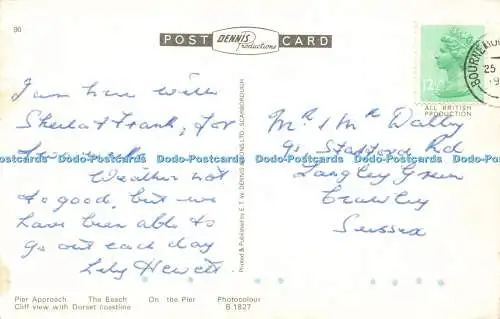 90
POST CARD
DENNIS Productions
BOURNEMOU
25
12½P
ALL BRITISH
PRODUCTION
I am here with
Sheila & Frank, for
Weather not
to good, but we
have been able to
go out each day
Lily Hewett.
Printed & Published by E. T. W. DENNIS & SONS LTD., SCARBOROUGH
Mr & Mrs Dalby
91 Stafford Rd
Langley Green
Crawley
Sussex
Dodo-Postcards Dodo-Postcards Dodo-Postcards Dodo-Postcards Dodo-Postcards Dodo-Postcards
Pier Approach The Beach On the Pier Photocolour
Cliff view with Dorset coastline B.1827